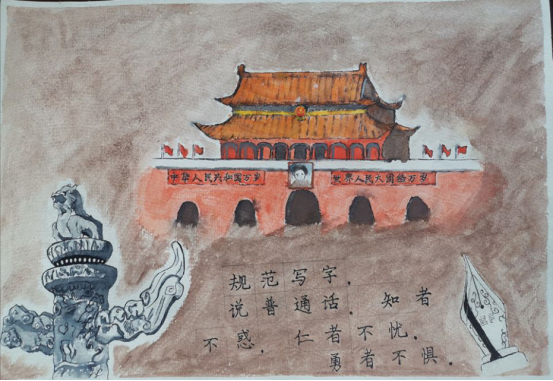 中华人民共和国万岁
世界人民大团结万岁
规范写字，
说普通话。知者
不惑，仁者不忧，
勇者不惧。